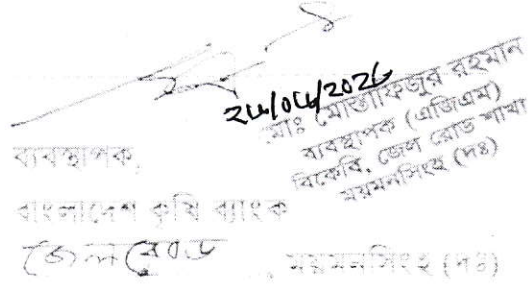 ২৮/০৮/২০২৮
মোঃ মোস্তাফিজুর রহমান
ব্যবস্থাপক (এজিএম)
বিকেবি, জেল রোড শাখা
ময়মনসিংহ (দঃ)
ব্যবস্থাপক,
বাংলাদেশ কৃষি ব্যাংক
জেল রোড , ময়মনসিংহ (দঃ)